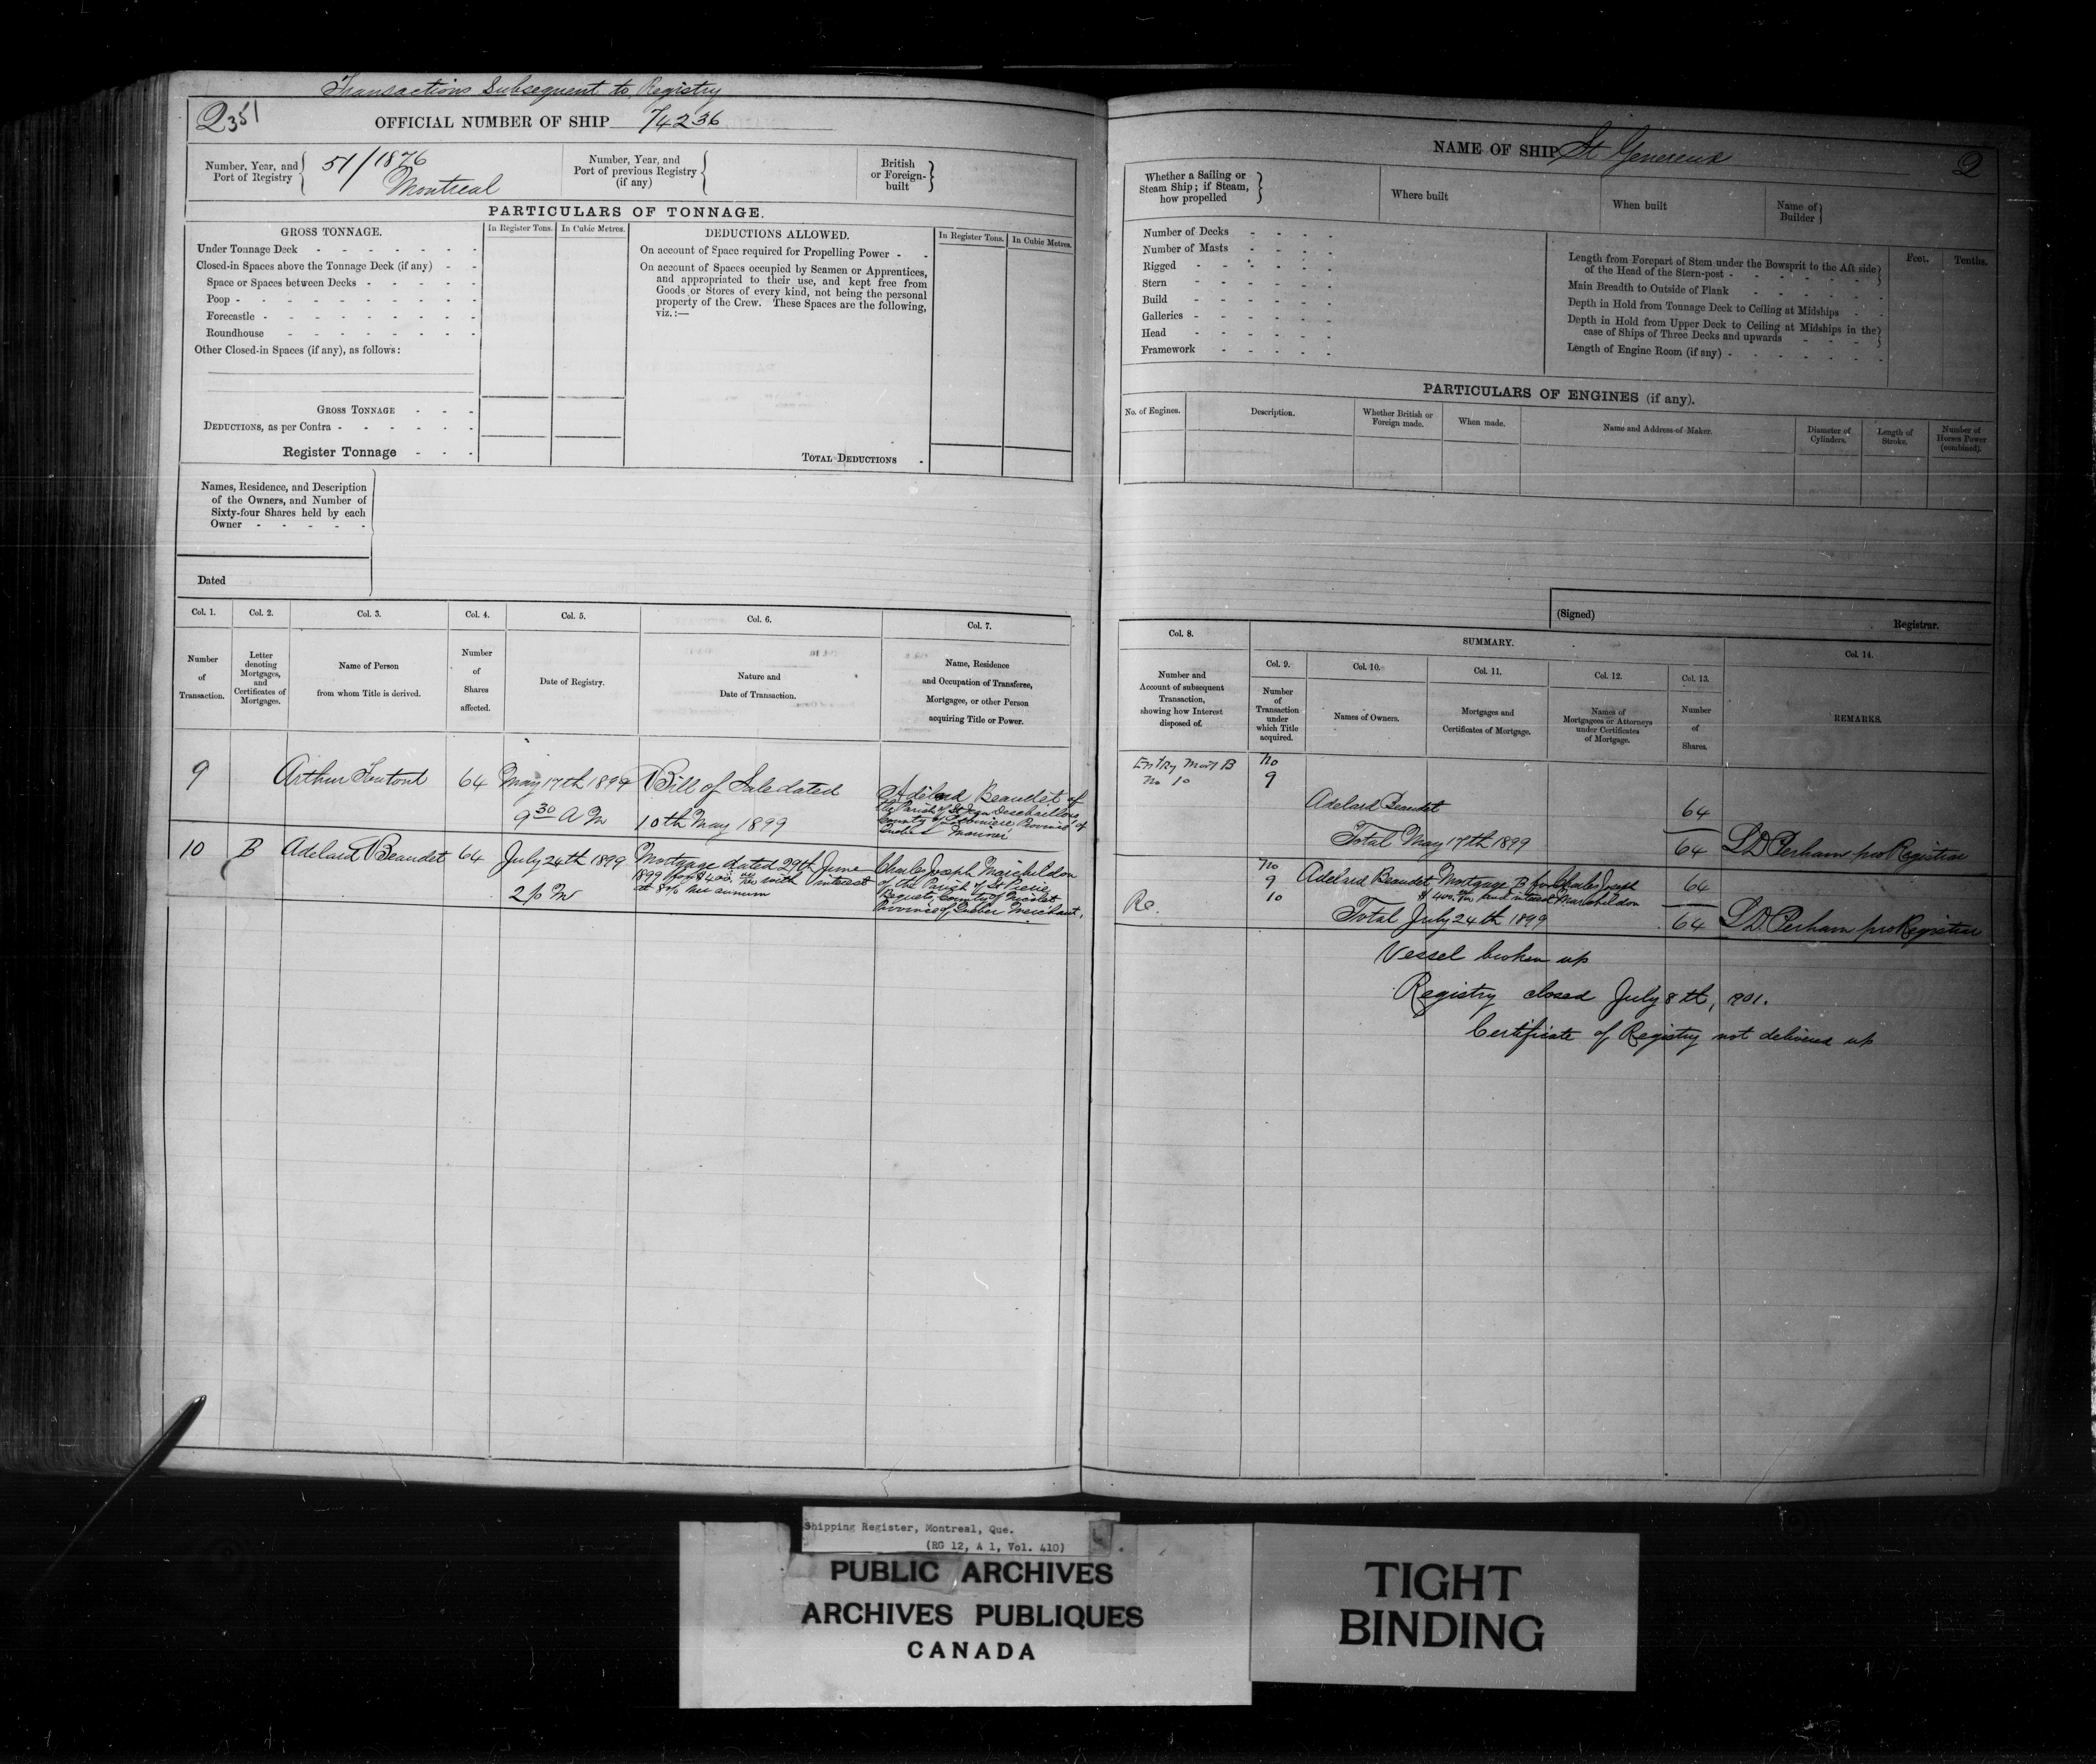 Transactions Subsequent to Registry
2351
OFFICIAL NUMBER OF SHIP 74236
Number, Year, and Port of Registry
51/1876
Montreal
Number, Year, and Port of previous Registry (if any)
British or Foreign-built
PARTICULARS OF TONNAGE.
GROSS TONNAGE.
In Register Tons.
In Cubic Metres.
DEDUCTIONS ALLOWED.
In Register Tons.
In Cubic Metres.
Under Tonnage Deck
Closed-in Spaces above the Tonnage Deck (if any)
Space or Spaces between Decks
Poop
Forecastle
Roundhouse
Other Closed-in Spaces (if any), as follows:
GROSS TONNAGE
DEDUCTIONS, as per Contra
Register Tonnage
On account of Space required for Propelling Power
On account of Spaces occupied by Seamen or Apprentices,
and appropriated to their use, and kept free from
Goods or Stores of every kind, not being the personal
property of the Crew. These Spaces are the following,
viz.:—
TOTAL DEDUCTIONS
Names, Residence, and Description
of the Owners, and Number of
Sixty-four Shares held by each
Owner
Dated
Col. 1.
Col. 2.
Col. 3.
Col. 4.
Col. 5.
Col. 6.
Col. 7.
Number of Transaction.
Letter denoting Mortgages, and Certificates of Mortgages.
Name of Person from whom Title is derived.
Number of Shares affected.
Date of Registry.
Nature and Date of Transaction.
Name, Residence and Occupation of Transferee, Mortgagee, or other Person acquiring Title or Power.
9
Arthur
64
May 17th 1899
9 30 A M
Bill of Sale dated
10th May 1899
Adélard Beaudet of
the Parish of St Jean Deschaillons
County of Lotbiniere Province of
Quebec Mariner
10
B
Adelard Beaudet
64
July 24th 1899
2 p M
Mortgage dated 29th June
1899 for $400. with interest
at 8% per annum
Charles Joseph Marchildon
of the Parish of St Pierre
Bequets, County of Nicolet
Province of Quebec Merchant.
NAME OF SHIP St Genereux
2
Whether a Sailing or Steam Ship; if Steam, how propelled
Where built
When built
Name of Builder
Number of Decks
Number of Masts
Rigged
Stern
Build
Galleries
Head
Framework
Feet.
Tenths.
Length from Forepart of Stem under the Bowsprit to the Aft side
of the Head of the Stern-post
Main Breadth to Outside of Plank
Depth in Hold from Tonnage Deck to Ceiling at Midships
Depth in Hold from Upper Deck to Ceiling at Midships in the
case of Ships of Three Decks and upwards
Length of Engine Room (if any)
PARTICULARS OF ENGINES (if any).
No. of Engines.
Description.
Whether British or Foreign made.
When made.
Name and Address of Maker.
Diameter of Cylinders.
Length of Stroke.
Number of Horses Power (combined).
(Signed)
Registrar.
Col. 8.
SUMMARY.
Col. 14.
Col. 9.
Col. 10.
Col. 11.
Col. 12.
Col. 13.
Number and Account of subsequent Transaction, showing how Interest disposed of.
Number of Transaction under which Title acquired.
Names of Owners.
Mortgages and Certificates of Mortgage.
Names of Mortgagees or Attorneys under Certificates of Mortgage.
Number of Shares.
REMARKS.
Entry Mort B
No 10
No
9
Adelard Beaudet
64
Total May 17th 1899
64
L D Perham pro Registrar
No
9
10
Adelard Beaudet
Mortgage B for
$400. and interest
Charles Joseph
Marchildon
64
Re.
Total July 24th 1899
64
L D. Perham pro Registrar
Vessel broken up
Registry closed July 8th, 1901.
Certificate of Registry not delivered up
Shipping Register, Montreal, Que.
(RG 12, A 1, Vol. 410)
PUBLIC ARCHIVES
ARCHIVES PUBLIQUES
CANADA
TIGHT
BINDING